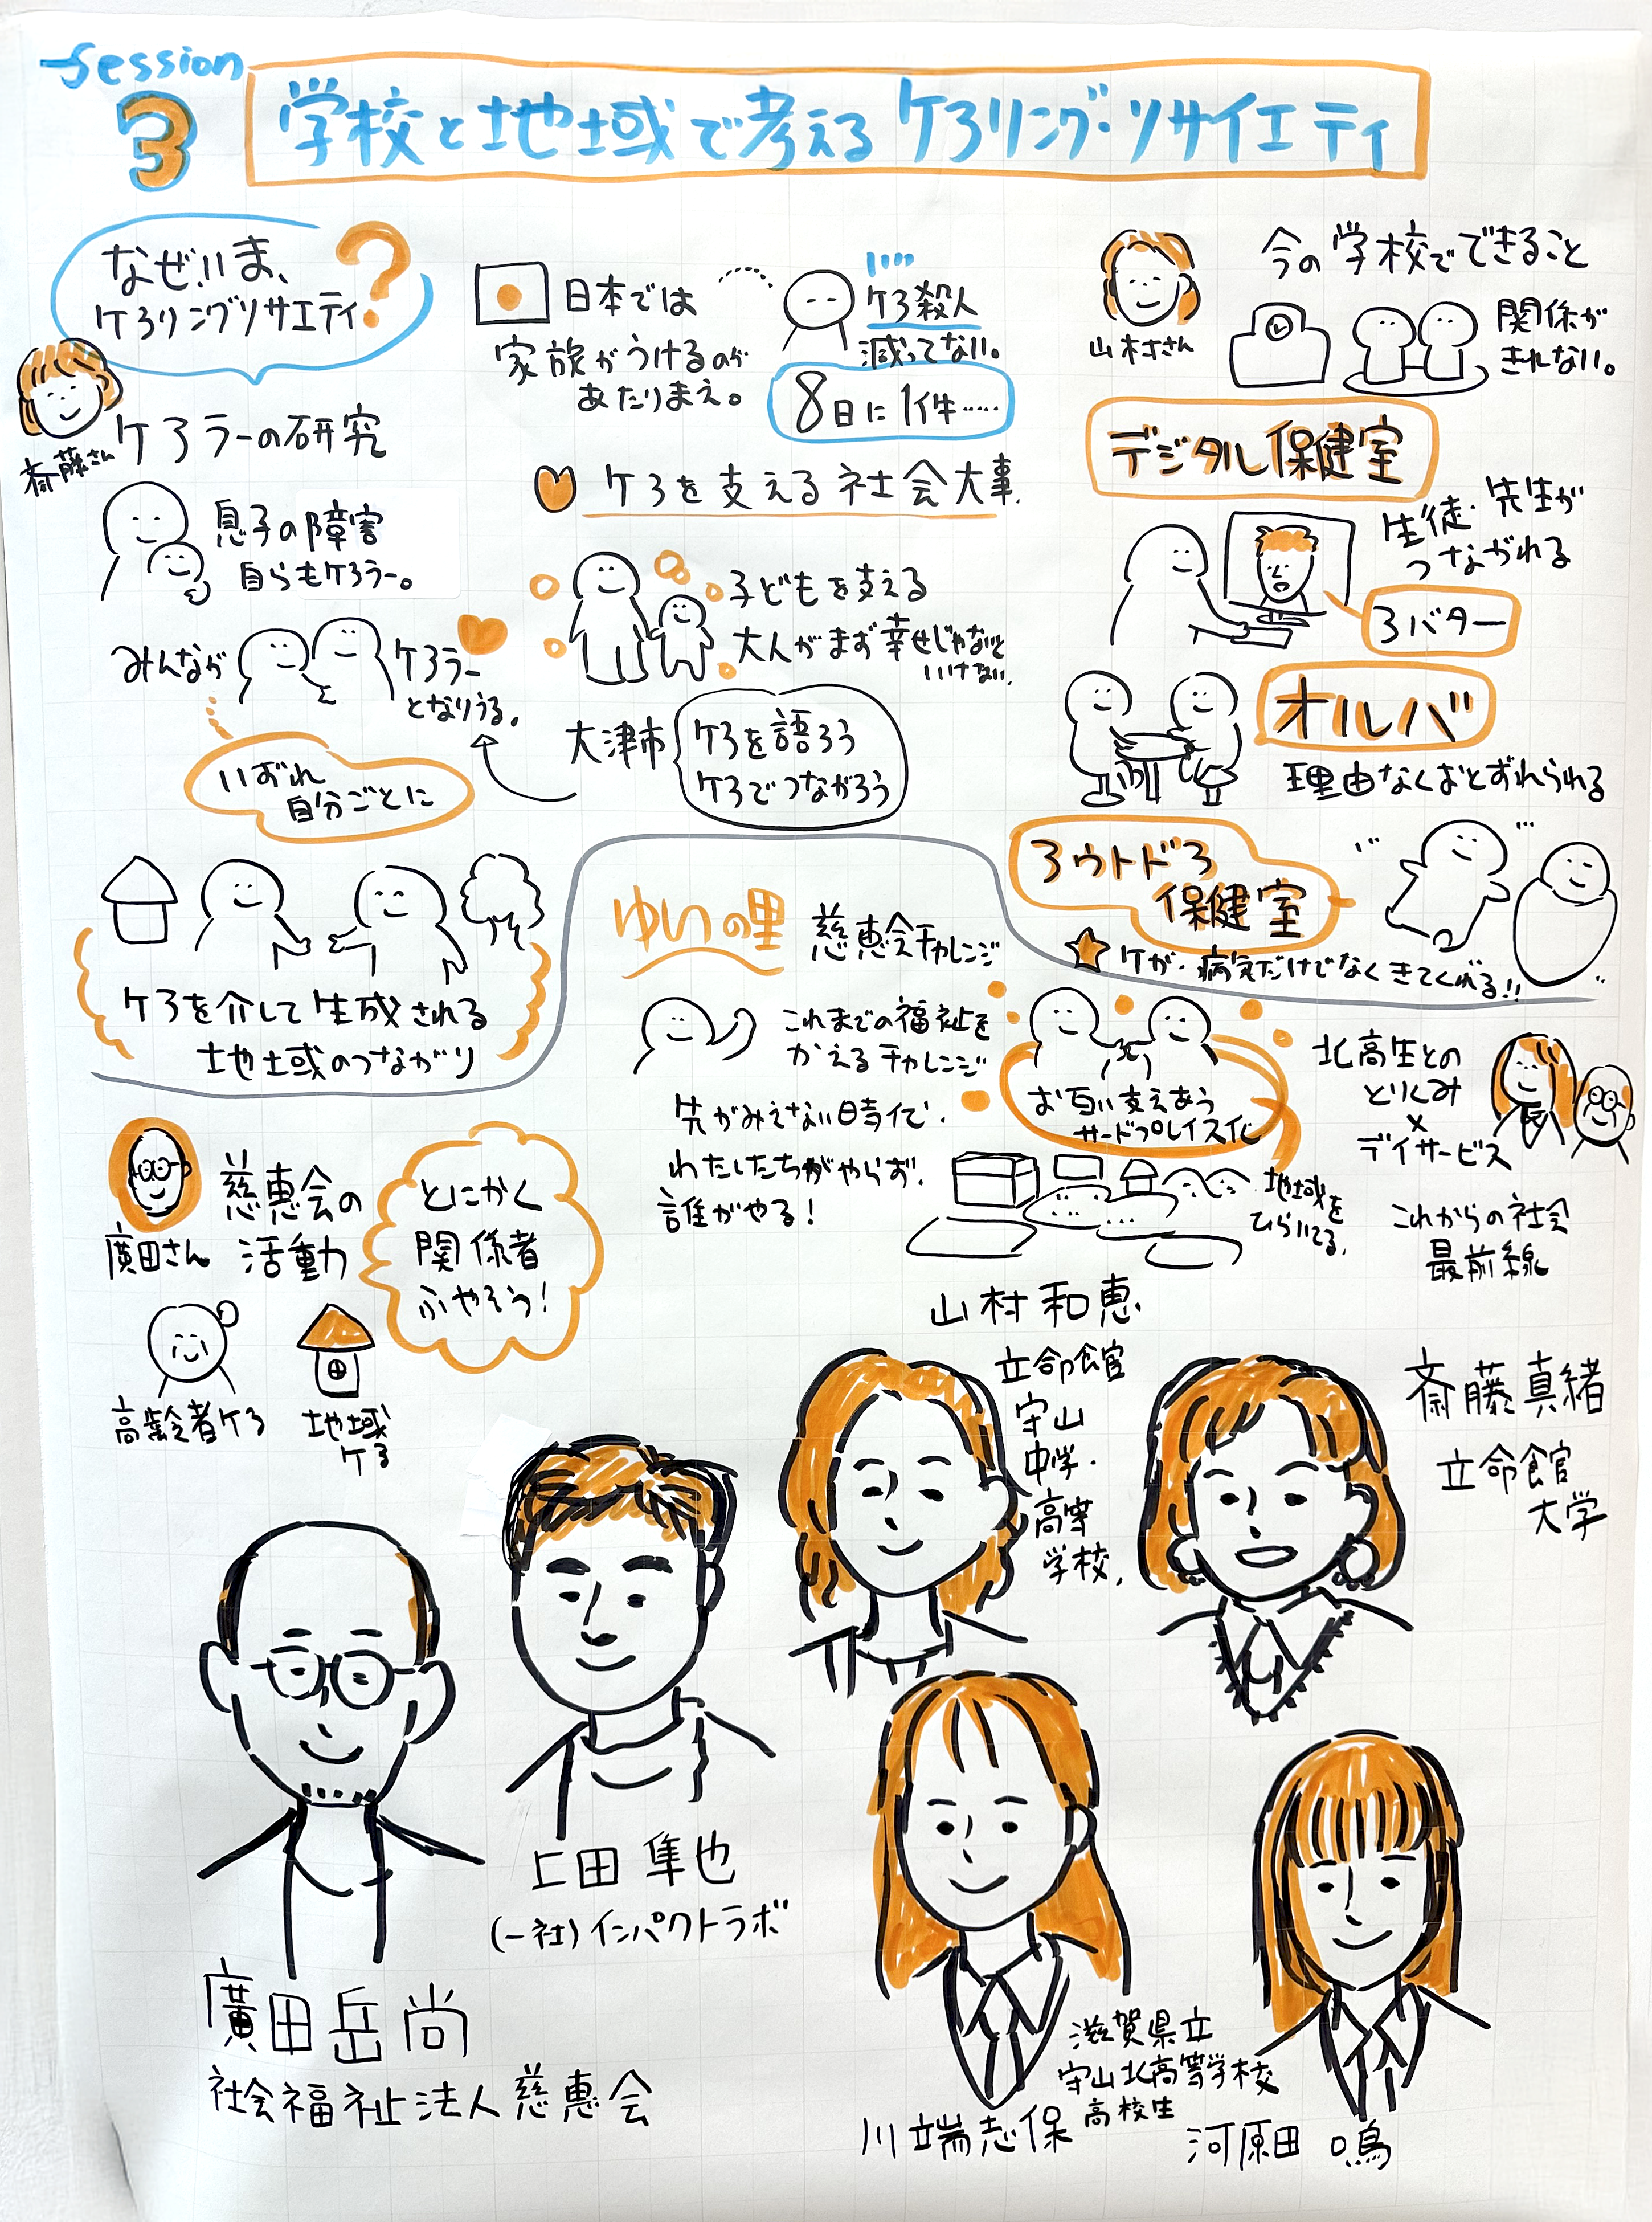 Session
3
学校と地域で考えるケアリング・ソサイエティ
なぜ!!ま、
ケアリングソサエティ?
斎藤さん
ケアラーの研究
息子の障害
自らもケアラー。
みんなが
ケアラー
となりうる。
いずれ
自分ごとに
ケアを介して生成される
地域のつながり
日本では
家族がうけるのが
あたりまえ。
ケア殺人
減ってない。
8日に1件……
ケアを支える社会大事.
子どもを支える
大人がまず幸せじゃないと
いけない.
大津市
ケアを語ろう
ケアでつながろう
山村さん
今の学校でできること
関係が
きれない。
デジタル保健室
生徒・先生が
つながれる
アバター
オルバ
理由なくおとずれられる
アウトドア
保健室
ケガ・病気だけでなくきてくれる!!
ゆいの里
慈恵会チャレンジ
これまでの福祉を
かえるチャレンジ
先がみえない時代.
わたしたちがやらず.
誰がやる!
お互い支えあう
サードプレイス化
地域を
ひらいてる.
北高生との
とりくみ
×
デイサービス
これからの社会
最前線
廣田さん
慈恵会の
活動
とにかく
関係者
ふやそう!
高齢者ケア
地域
ケア
山村和恵
立命館
守山
中学・
高等
学校,
斎藤真緒
立命館
大学
上田隼也
(一社)インパクトラボ
廣田岳尚
社会福祉法人慈恵会
滋賀県立
守山北高等学校
高校生
川端志保
河原田鳴